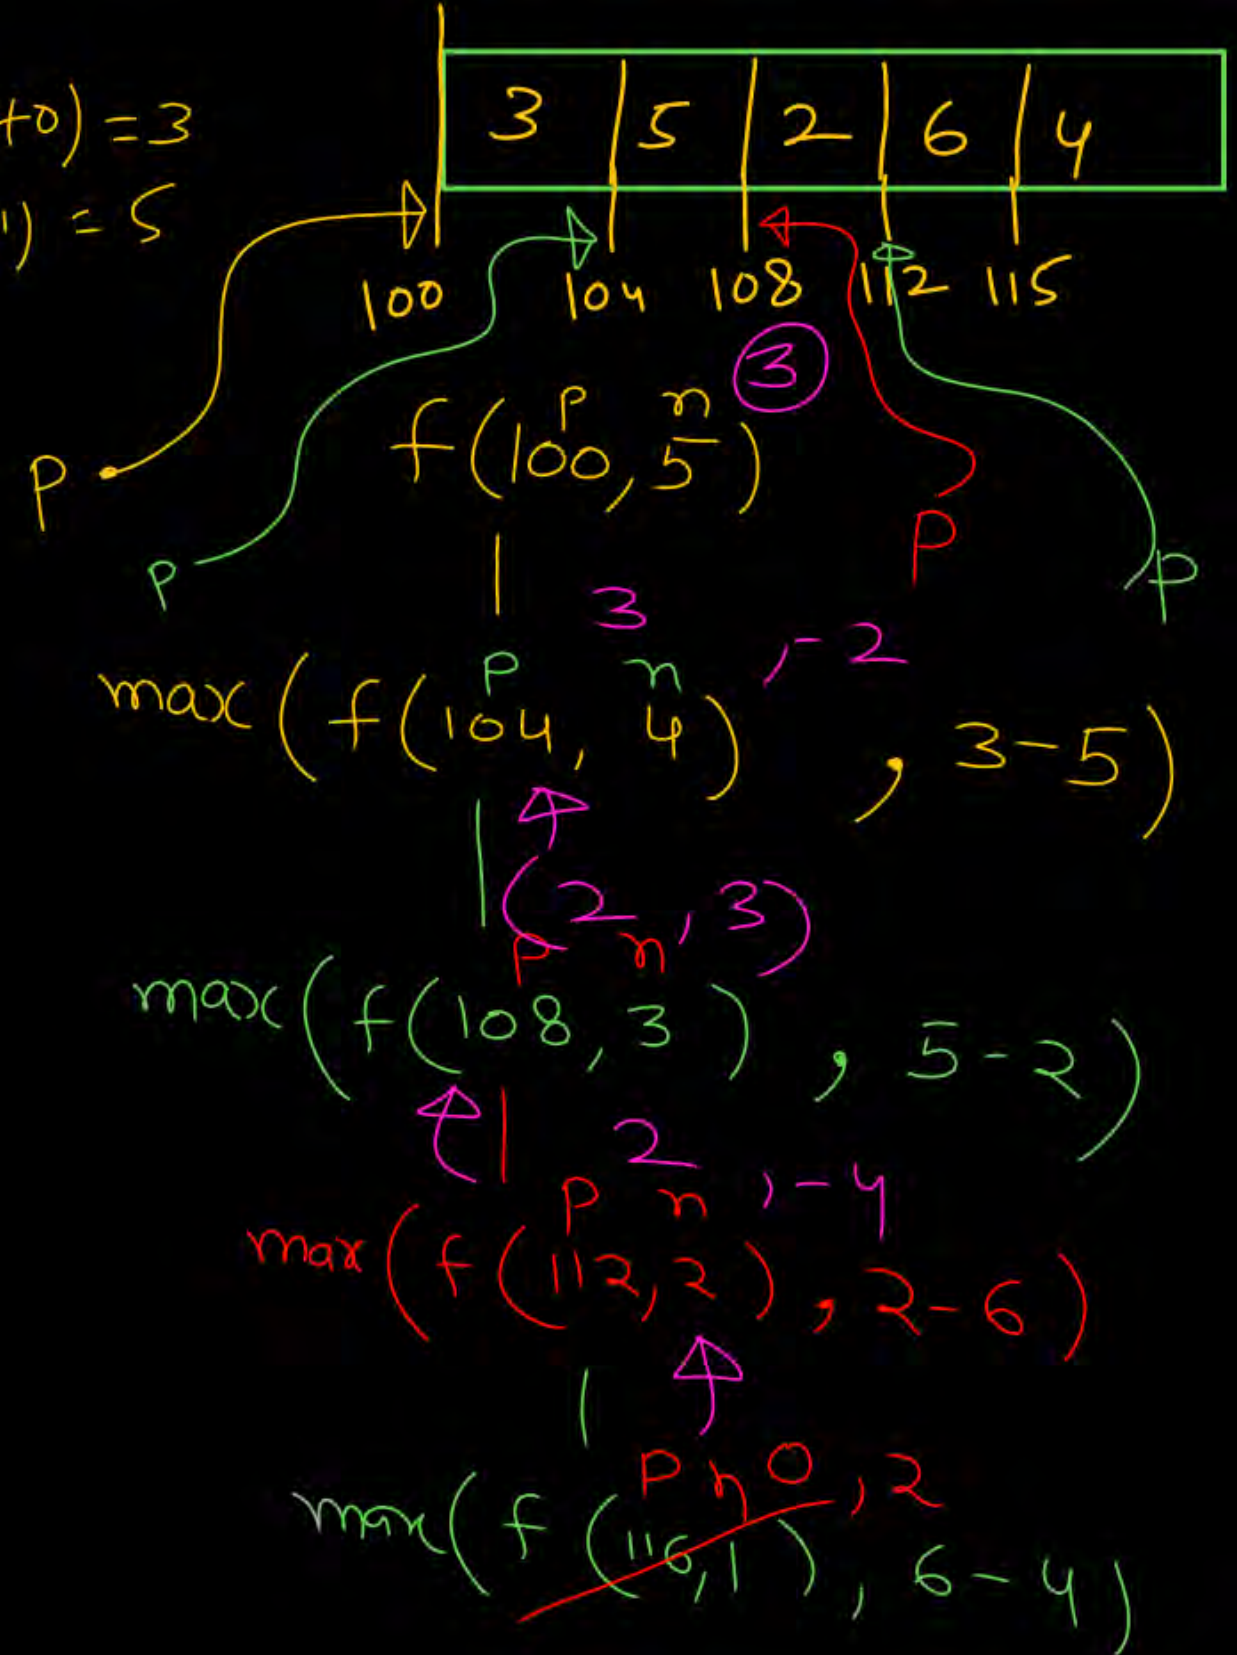 +0) = 3
3 5 2 6 4
1) = 5
100 104 108 112 115
3
p n
f(100, 5)
p
p
p
p
3
p n , -2
max(f(104, 4) , 3-5)
(2, 3)
p n
max(f(108, 3) , 5-2)
2
p n , -4
max(f(112, 2) , 2-6)
p n 0 , 2
max(f(116, 1) , 6-4)